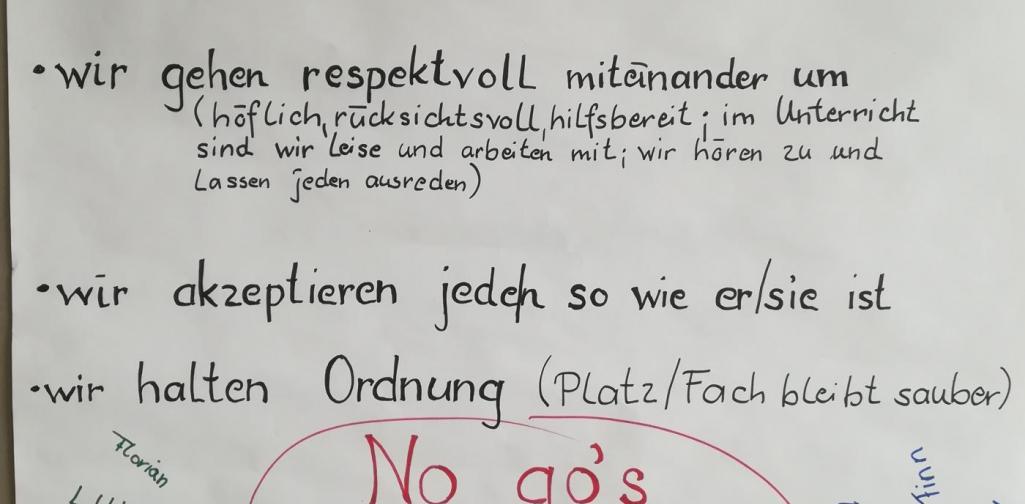 • wir gehen respektvoll miteinander um
(höflich, rücksichtsvoll, hilfsbereit; im Unterricht
sind wir leise und arbeiten mit; wir hören zu und
lassen jeden ausreden)
• wir akzeptieren jeden so wie er/sie ist
• wir halten Ordnung (Platz/Fach bleibt sauber)
No go's
Florian
Finn